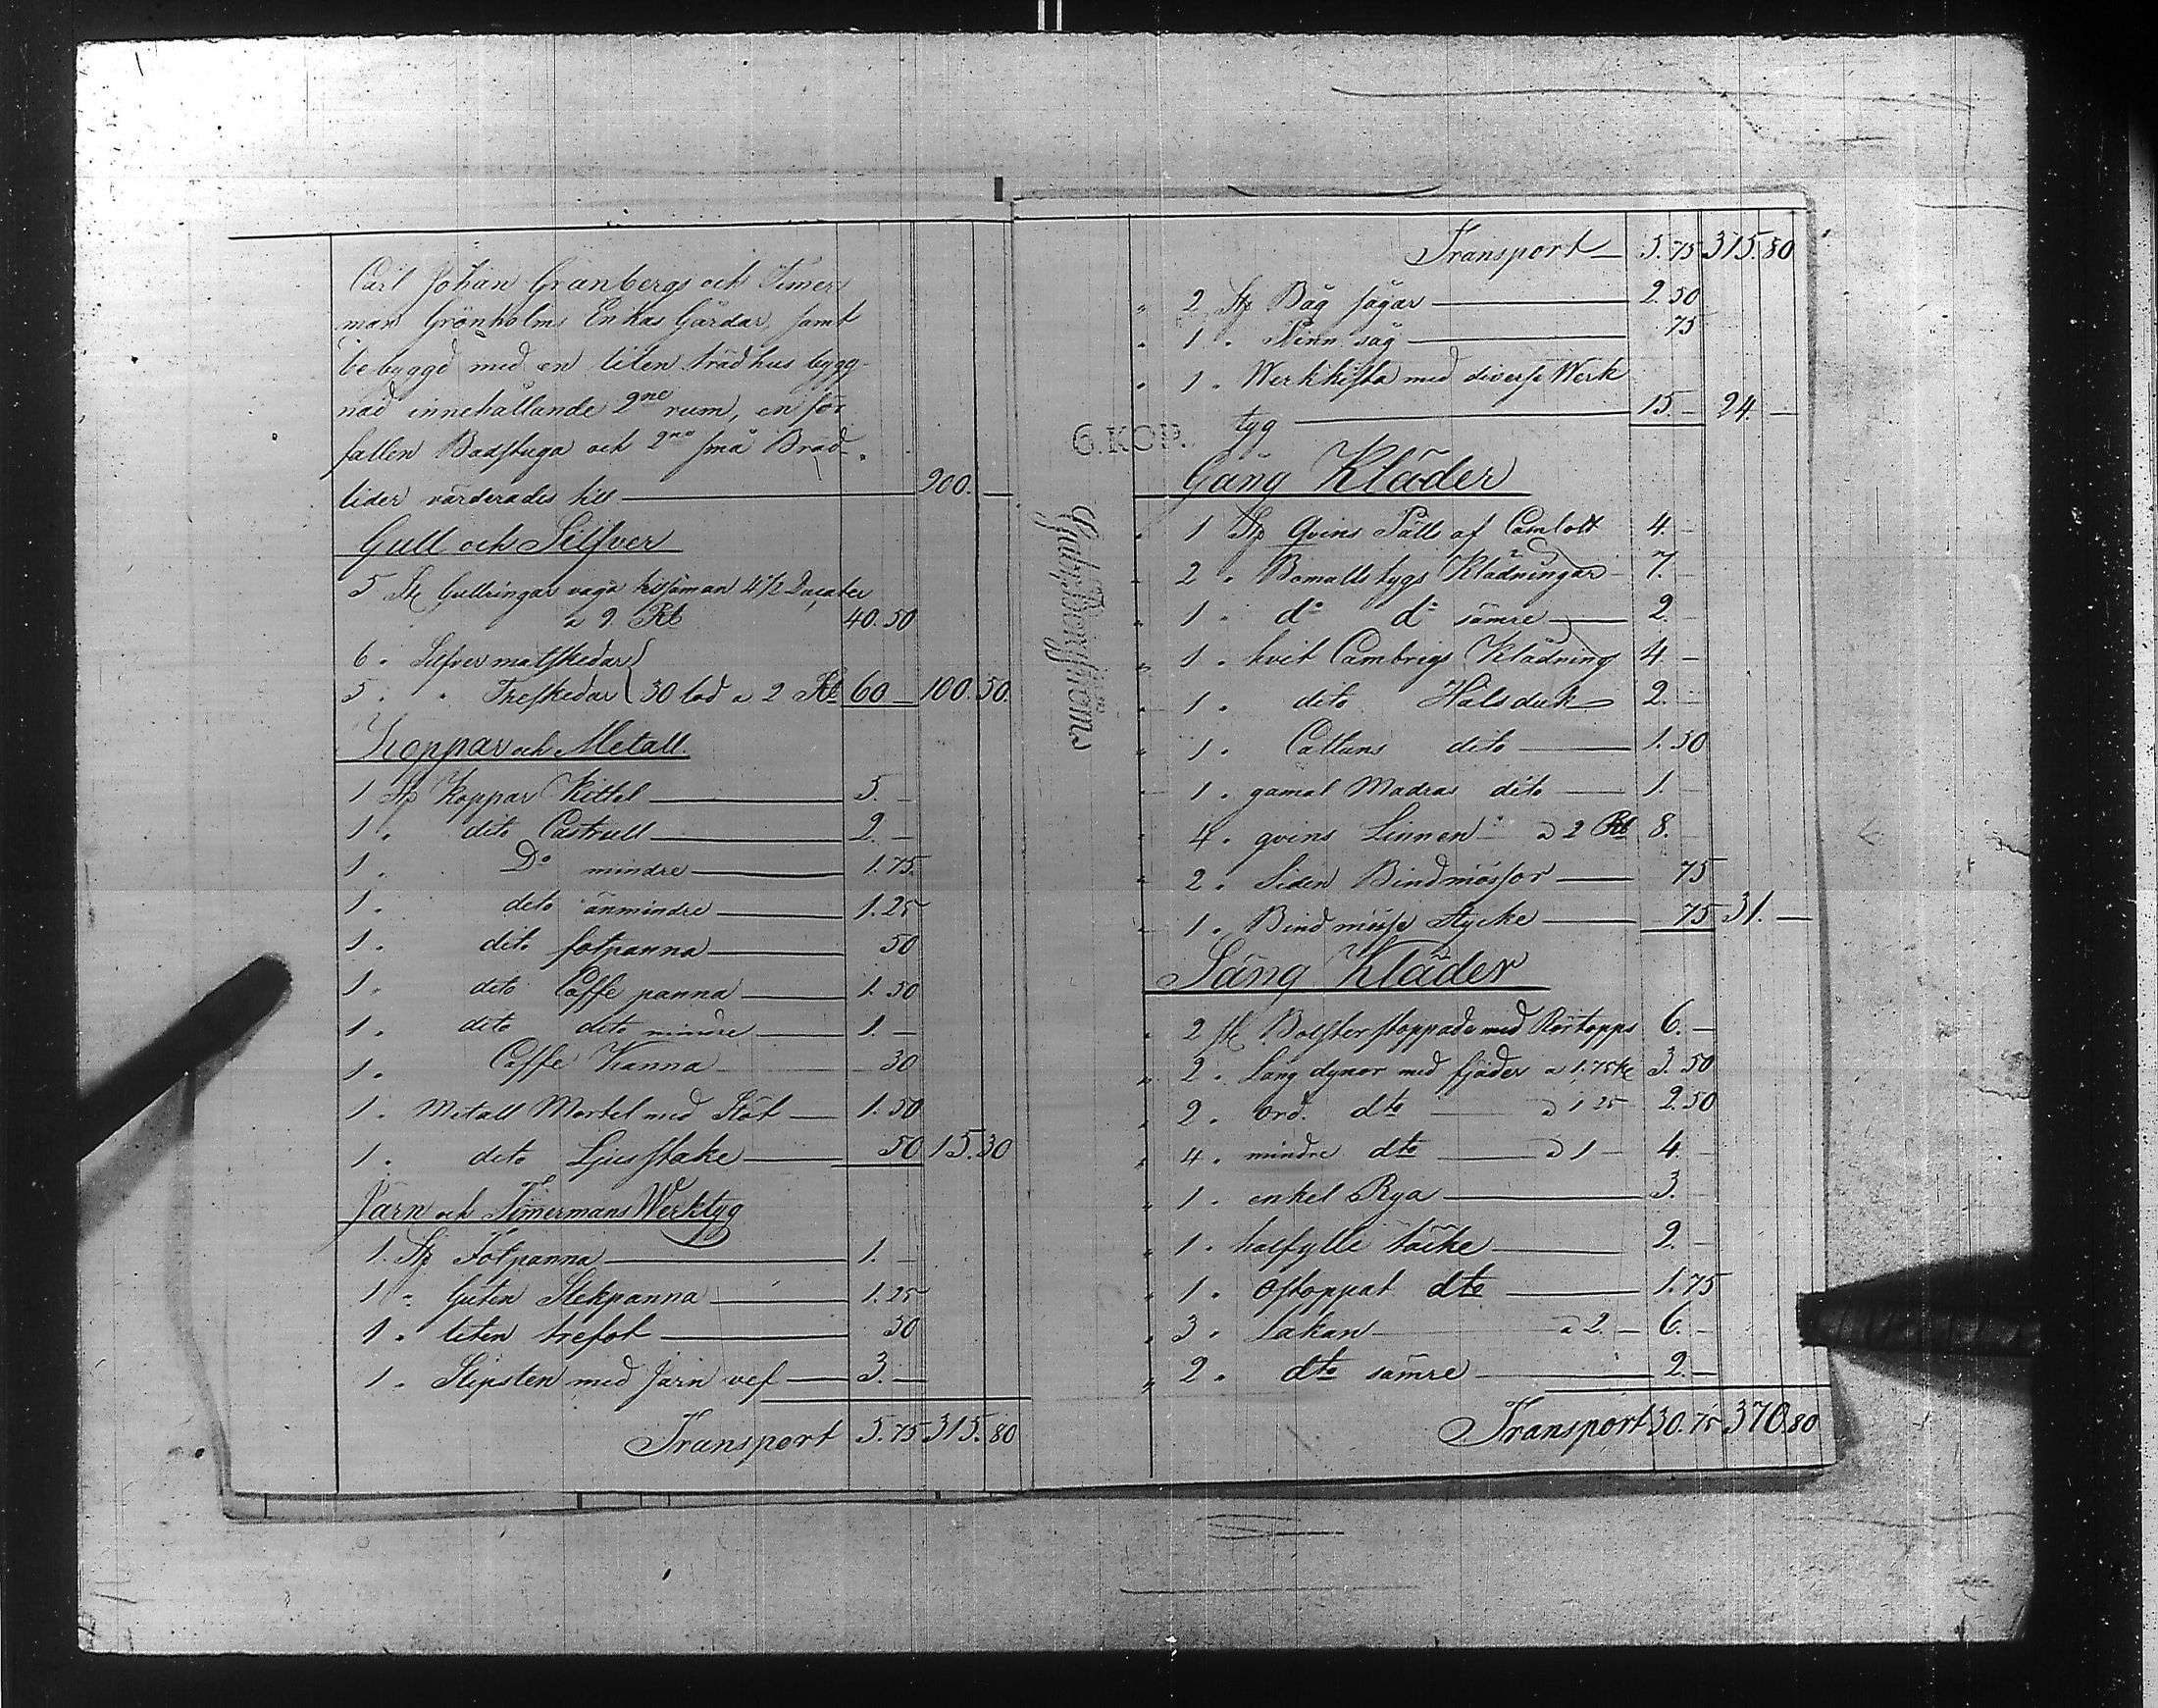 Carl Johan Granbergs och Timer
man Grönholms Enkas Gårdar, samt
bebyggd med en liten trädhus bygg-
nad innehållande 2ne rum, en för
fallen Badstuga och 2ne små Bräd-
lider värderades till — 200. —
Gull och Silfver
5 St Gullringar väga tillsaman 4 1/2 Ducater
a 9 Rb 40.50
6 " Silfver matskedar
5 " " Theskedar 30 lod a 2 Rb 60 — 100.50.
Koppar och Metall.
1 St Koppar Kittel — 5. —
1 " dito Castrull — 2. —
1 " Do mindre — 1.75.
1 " dito änmindre — 1.25
1 " dito fotpanna — 50
1 " dito Caffe panna — 1.50
1 " dito dito mindre — 1. —
1 " Caffe Kanna — 30
1 " Metall Mortel med Stöt — 1.50
1 " dito Ljusstake — 50 15.30
Järn och Timermans Werktyg
1 St Fotpanna — 1. —
1 " Guten Stekpanna — 1.25
1 " liten trefot — 50
1 " Slipsten med Järn vef — 3. —
Transport 5.75 315.80
Transport — 5.75 315.80
" 2 St Båg sågar — 2.50
" 1 " såg — 75
" 1 " Werkkista med diverse Werk
tyg — 15. — 24. —
6. KOP.
Gång Kläder
" 1 St Qvins Pälls af Camlott 4. —
" 2 " Bomullstygs Klädningar 7. —
" 1 " do do sämre — 2. —
" 1 " hvit Cambrigs Klädning 4 —
" 1 " dito Halsduk 2. —
" 1 " Cattuns dito — 1.50
" 1 " gamal Madras dito — 1. —
" 4 " qvins Linnen a 2 Rb 8. —
" 2 " Siden Bindmössor — 75
" 1 " Bindmösse Stycke — 75 31. —
Säng Kläder
" 2 St Bolster stoppade med Rörtopps 6. —
" 2 " Lång dynor med fjäder a 1.75 3.50
" 2 " ord. dto — a 1 25 2.50
" 4 " mindre dto — a 1 — 4. —
" 1 " enkel Rya — 3. —
" 1 " täcke — 2. —
" 1 " Ostoppat dto — 1.75
" 3 " Lakan — a 2. — 6. —
" 2 " dto sämre — 2. —
Transport 30.75 370.80